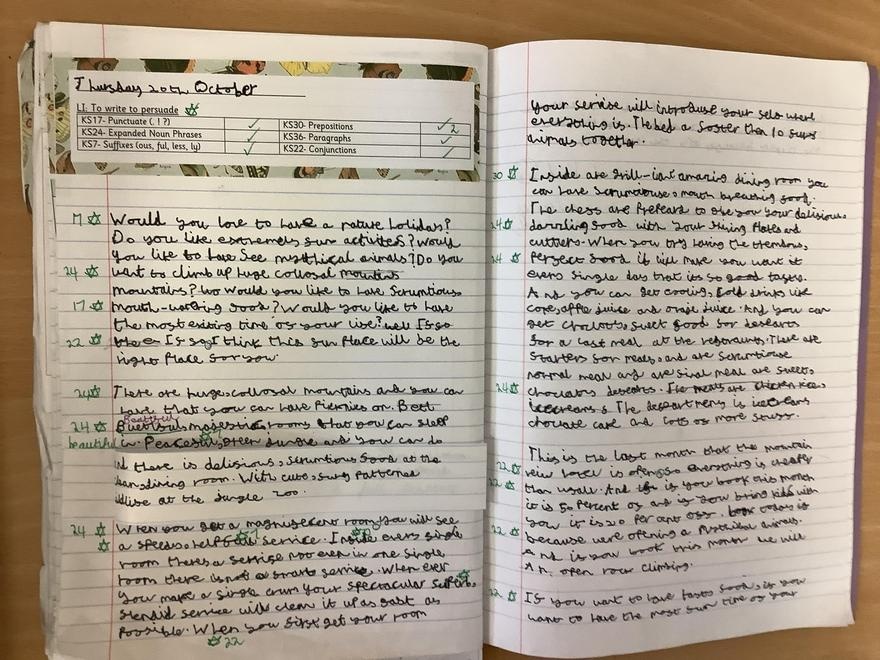 Thursday 20th October
LI: To write to persuade
KS17- Punctuate (. ! ?)
KS30- Prepositions
2
KS24- Expanded Noun Phrases
KS36- Paragraphs
KS7- Suffixes (ous, ful, less, ly)
KS22- Conjunctions
17 Would you love to have a nature holiday?
Do you like extremely fun activites? Would
you like to have see mythical animals? Do you
24 want to climb up huge colossal mountins
mountains? Wo Would you like to have Scrumtious
17 mouth-watering food? Would you like to have
the most exiting time of your live? well If so
22 If so I think this fun Place will be the
right Place for you.
24 There are huge, colossal mountains and you can
have that you can have Picnics on.
Beautiful
24 majestic rooms that you can sleep
beautiful in. Peaceful, green Jungle and you can do
there is delicious, Scrumtious food at the
dining room. With cute, furry Patterned
live at the Jungle Zoo.
24 When you get a magnificent room you will see
a speedy, helpful service. Inside every single
room theres a service not even in one single
room there is not a smart service. When ever
you make a single crum your spectacular superb,
splendid service will clean it up as fast as
Possible. When you first get your room
22
your service will introduse your self where
everything is. The bed a softer than 10
animals together.
30 Inside are amazing dining room you
can have Scrumtiouse, mouth breathing food.
The chefs are Prepeard to give you your delisious,
24 dazzling food with your shining Plates and
cutlery. When you try having the tremendous,
24 Perfect food it will make you want it
every single day that its so good tasty.
And you can get cooling, cold drinks like
coke, apple juice and oraje juice. And you can
get chocolate, sweet food for desearts
for a last meal at the restaurants. There are
Starters for meals, and are Scrumtiouse
normal meal any are final meal are sweets,
24 chocolate desearts.
chocolate cake and lots of more stuff.
This is the last month that the mountain
22 veiw hotel is open, so everything is cheaper
22 than usall. And if you book this month
it is 50 Percent of and if you bring kids with
you it is 20 Per cent off.
22 because were opening a Mythical animals.
And if you book this month we will
An. open rock climbing.
22 If you want to have tasty food, if you
want to have the most fun time of your